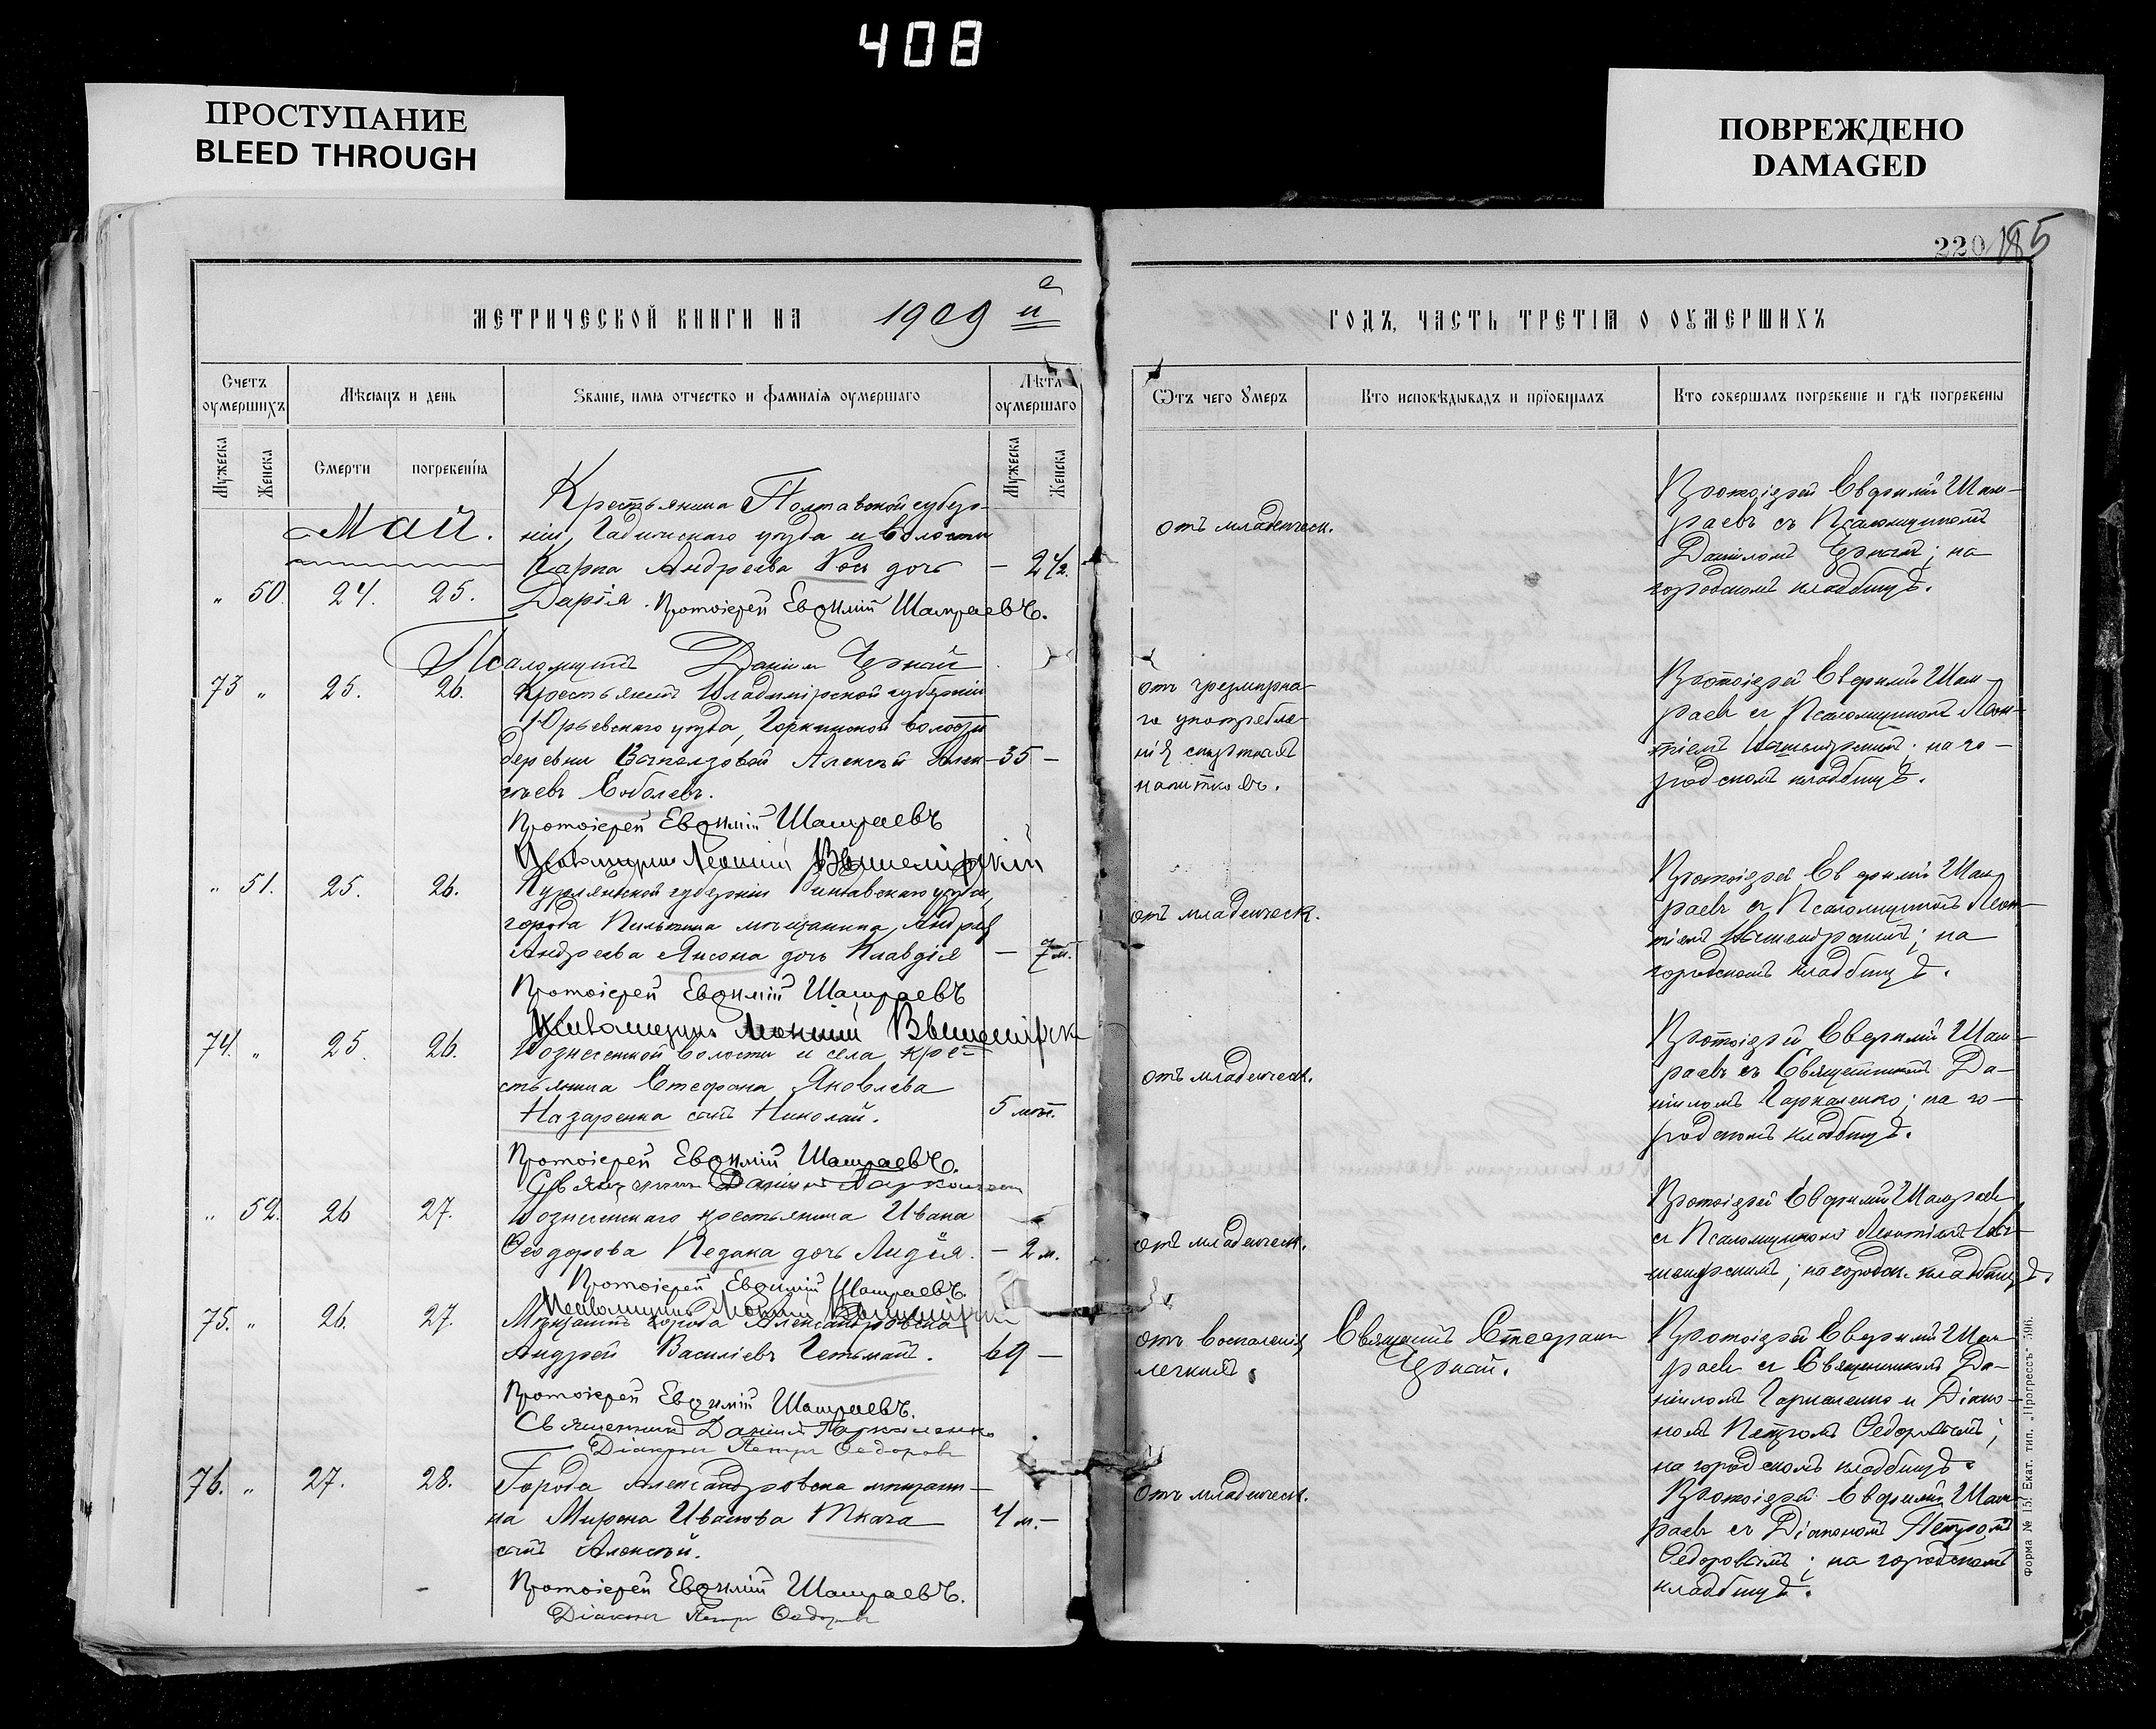 408
ПРОСТУПАНИЕ
BLEED THROUGH
ПОВРЕЖДЕНО
DAMAGED
220
185
МЕТРИЧЕСКОЙ КНИГИ НА 1909 й
ГОДЪ, ЧАСТЬ ТРЕТІЯ О ОУМЕРШИХЪ
Счетъ оумершихъ
Мѣсяцъ и день
Званіе, имя отчество и фамилія оумершаго
Лѣта оумершаго
Мужеска
Женска
Смерти
погребенія
Мужеска
Женска
Отъ чего Умеръ
Кто исповѣдывалъ и пріобщалъ
Кто совершалъ погребеніе и гдѣ погребены
Май.
Крестьянина Полтавской губер-
ніи, Гадичскаго уѣзда и волости
Карпа Андреева дочь
" 50. 24. 25. Дарія.
Протоіерей Евфимій Шамраевъ.
Псаломщикъ Даніилъ Чернай
отъ младенческ.
Протоіерей Евфимій Шам-
раевъ съ Псаломщикомъ
Даніиломъ Чернаемъ; на
городскомъ кладбищѣ.
73 " 25. 26. Крестьянинъ Владимірской губерніи
Юрьевскаго уѣзда, Горкинской волости
деревни Алексѣй Алек- 35 —
сѣевъ Соболевъ.
Протоіерей Евфимій Шамраевъ
Псаломщикъ Леонтій Вышемірскій
отъ чрезмѣрна-
го употребле-
нія спиртныхъ
напитковъ.
Протоіерей Евфимій Шам-
раевъ съ Псаломщикомъ Леон-
тіемъ Вышемірскимъ; на го-
родскомъ кладбищѣ.
" 51. 25. 26. Курляндской губерніи Виндавскаго уѣзда,
города Пильтена мѣщанина, Андрея
Андреева Янсона дочь Клавдія — 7 м.
Протоіерей Евфимій Шамраевъ
Псаломщикъ Леонтій Вышемірск
отъ младенческ.
Протоіерей Евфимій Шам-
раевъ съ Псаломщикомъ Леон-
тіемъ Вышемірскимъ; на
городскомъ кладбищѣ.
74. " 25. 26. Вознесенской волости и села, кре-
стьянина Стефана Яковлева
Назаренка сынъ Николай. 5 мѣс.
Протоіерей Евфимій Шамраевъ.
Священникъ Даніилъ Гаркаленко
отъ младенческ.
Протоіерей Евфимій Шам-
раевъ съ Священникомъ Да-
ніиломъ Гаркаленко; на го-
родскомъ кладбищѣ.
" 52. 26 27. Вознесенскаго крестьянина Ивана
Ѳеодорова Педана дочь Лидія. — 2 м.
Протоіерей Евфимій Шамраевъ.
Псаломщикъ Леонтій Вышемірскій
отъ младенческ.
Протоіерей Евфимій Шамраевъ
съ Псаломщикомъ Леонтіемъ Вы-
шемірскимъ; на городск. кладбищѣ.
75. " 26. 27. Мѣщанинъ города Александровска
Андрей Василіевъ Гетьманъ. 69 —
Протоіерей Евфимій Шамраевъ.
Священникъ Даніилъ Гаркаленко
Діаконъ Петръ Ѳедоровъ
отъ воспаленія
легкихъ.
Священникъ Стефанъ
Чернай.
Протоіерей Евфимій Шам-
раевъ съ Священникомъ Да-
ніиломъ Гаркаленко и Діако-
номъ Петромъ Ѳедоровымъ;
на городскомъ кладбищѣ.
76. " 27. 28. Города Александровска мѣщани-
на Мирона Иванова Ткача 4 м. —
сынъ Алексѣй.
Протоіерей Евфимій Шамраевъ.
Діаконъ Петръ Ѳедоровъ
отъ младенческ.
Протоіерей Евфимій Шам-
раевъ съ Діакономъ Петромъ
Ѳедоровымъ; на городскомъ
кладбищѣ.
Форма № 15. Екат. тип. „Прогрессъ" 596.